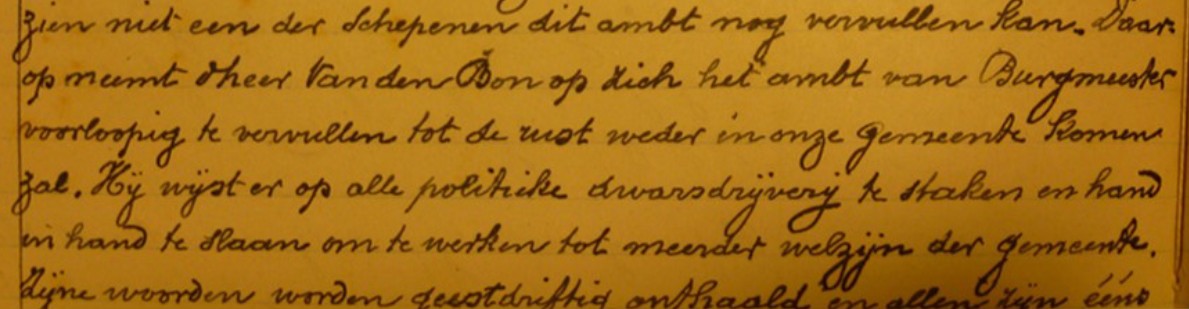 zien niet een der Schepenen dit ambt nog vervullen kan. Daar-
op neemt dheer Van den Bon op zich het ambt van Burgmeester
voorloopig te vervullen tot de rust weder in onze gemeente komen
zal. Hij wijst er op alle politieke dwarsdrijverij te staken en hand
in hand te slaan om te werken tot meerder welzijn der gemeente.
Zijne woorden worden geestdriftig onthaald en allen zijn ééns